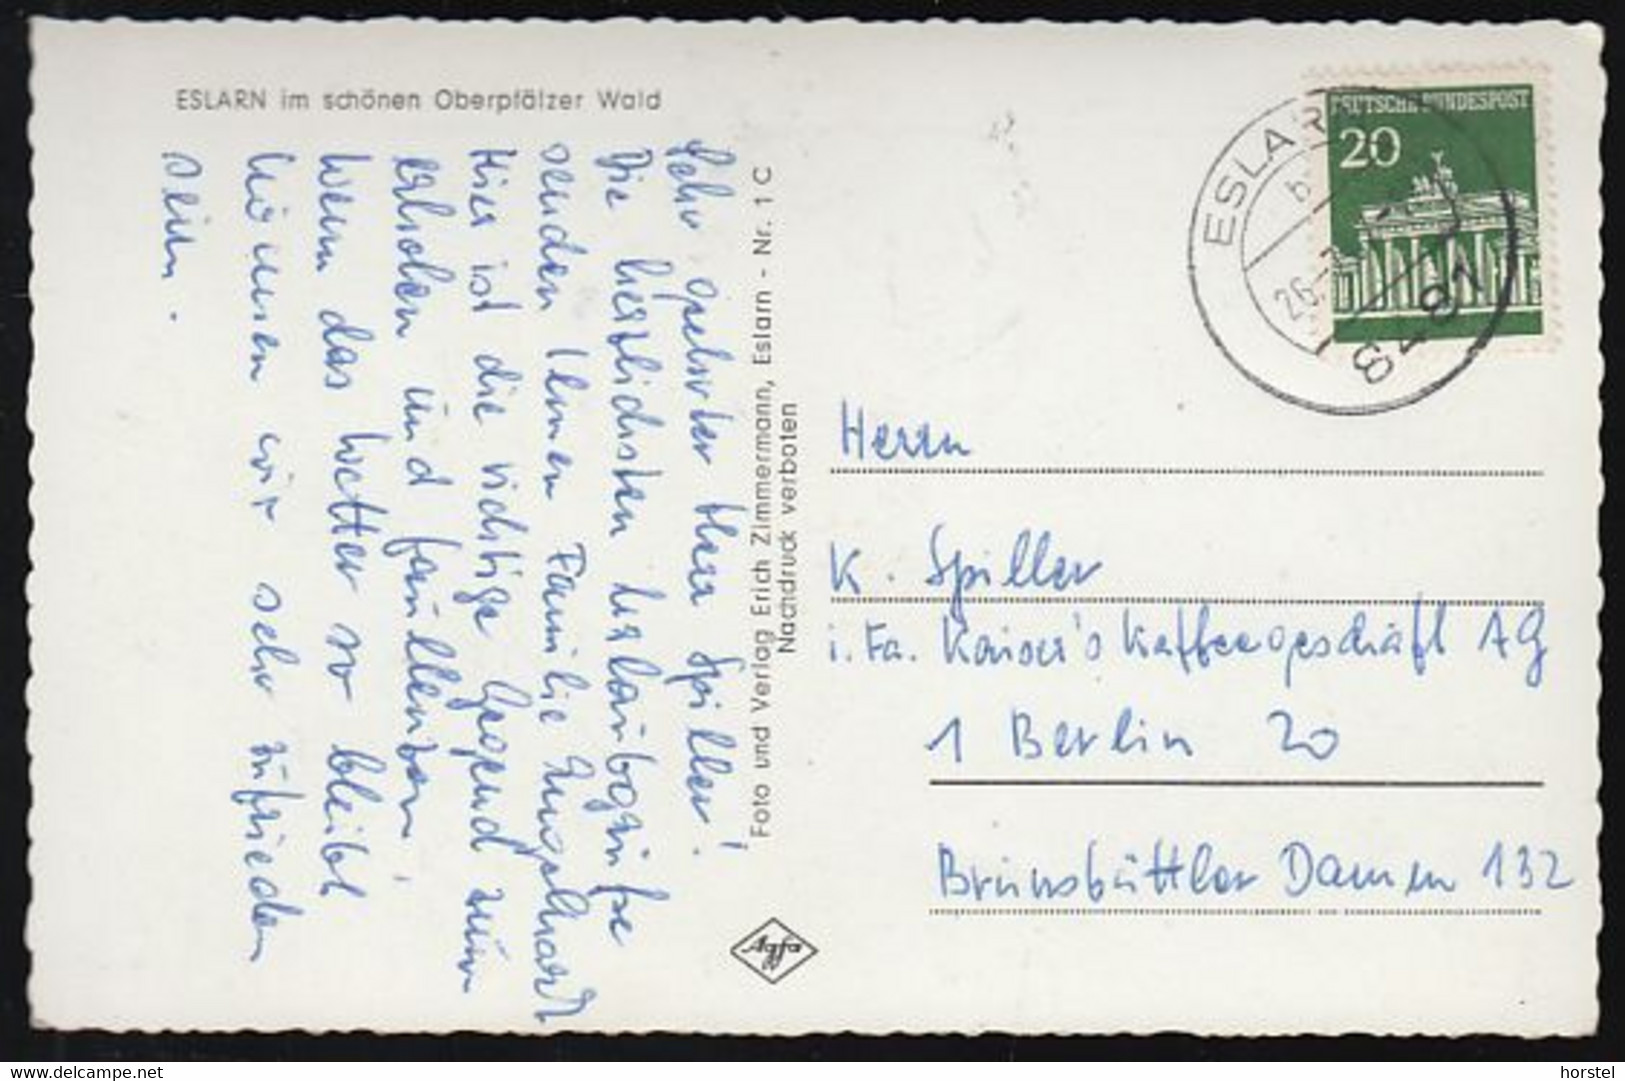 ESLARN im schönen Oberpfälzer Wald
Sehr geehrter Herr Spiller!
Die herzlichsten Urlaubsgrüße
senden Ihnen Familie Engelhardt
Hier ist die richtige Gegend zum
erholen und faullenzen,
Wenn das Wetter so bleibt
können wir sehr zufrieden
sein.
Foto und Verlag Erich Zimmermann, Eslarn - Nr. 1 C
Nachdruck verboten
Agfa
DEUTSCHE BUNDESPOST
20
ESLARN
b
26.
8481
Herrn
K. Spiller
i. Fa. Kaiser's Kaffeegeschäft AG
1 Berlin 20
Brunsbüttler Damm 132
www.delcampe.net
horstel